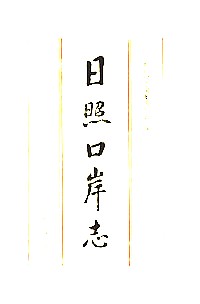 日照口岸志